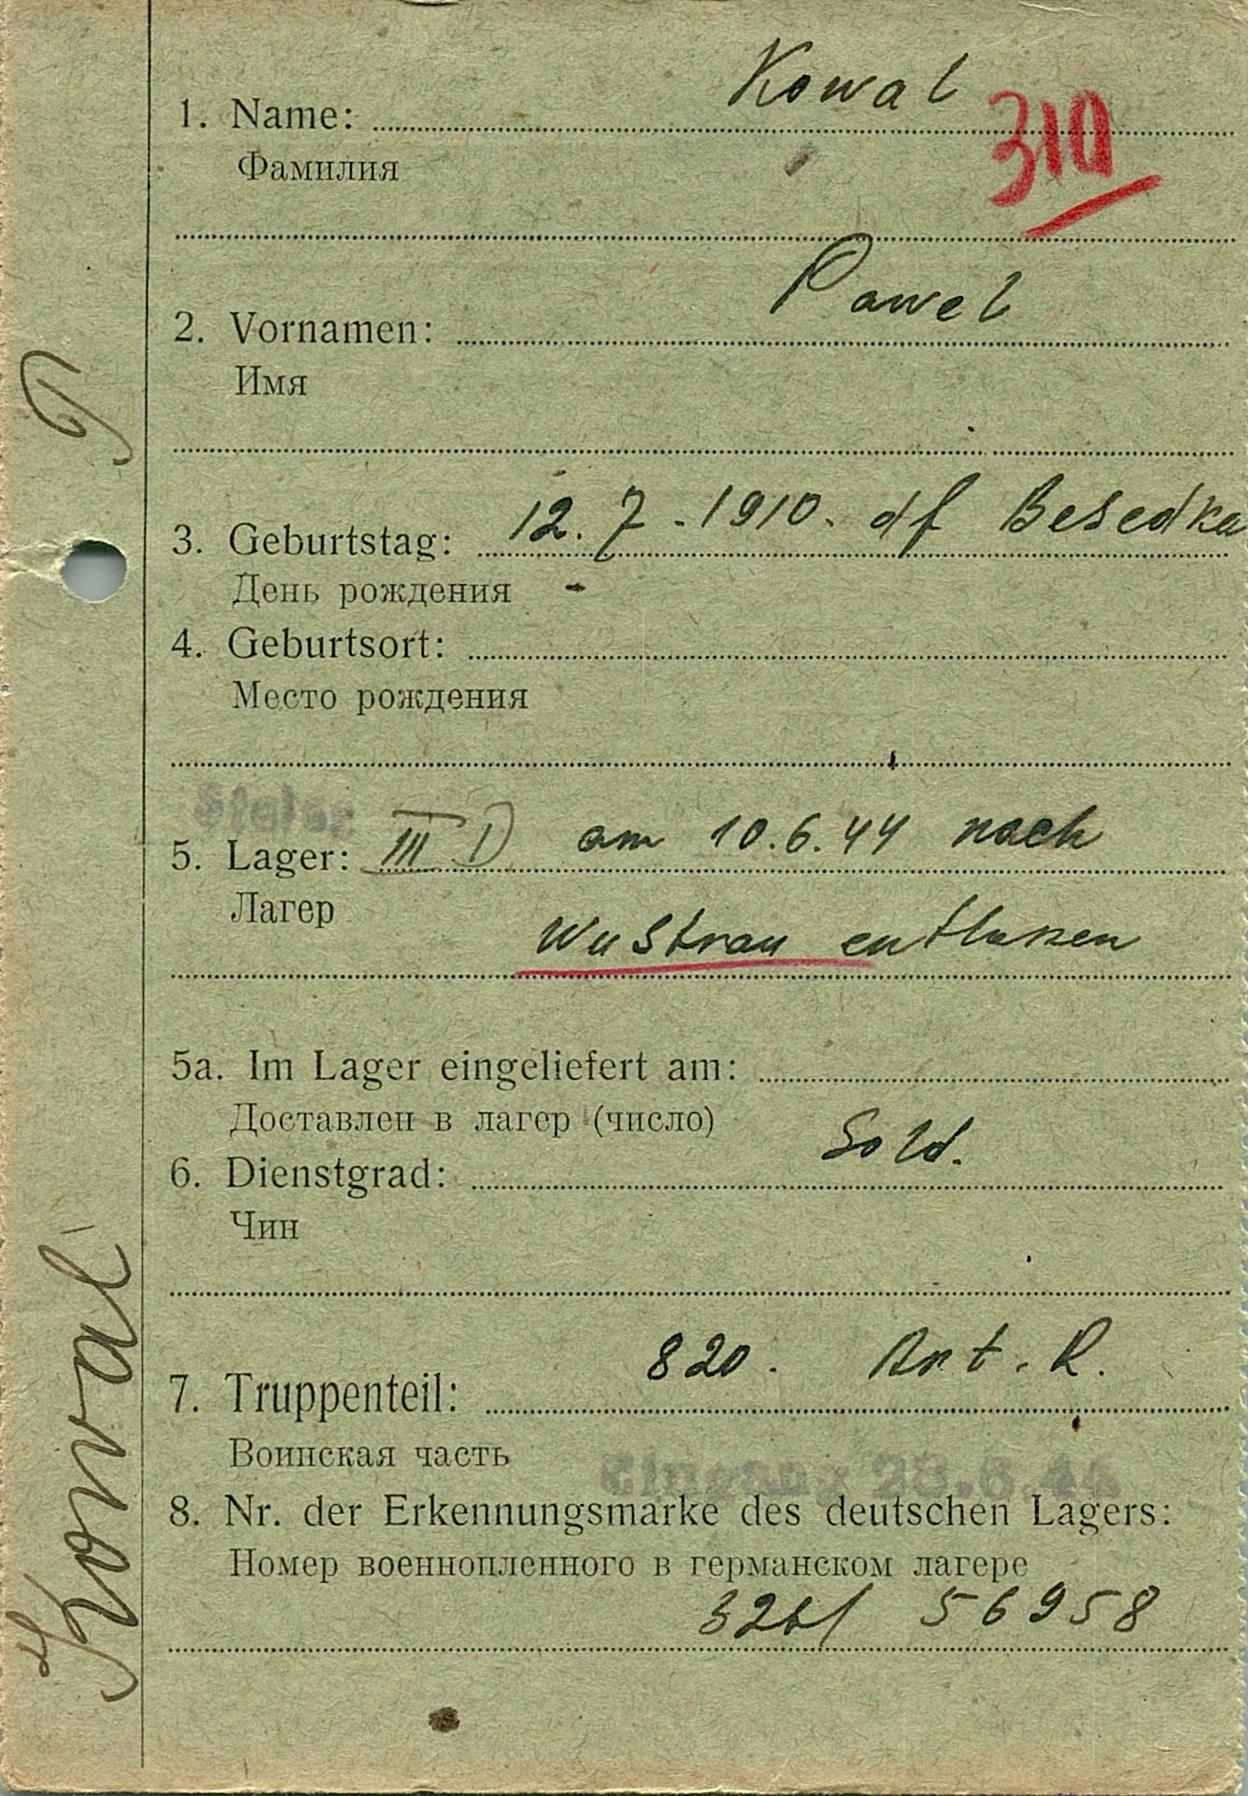 Kowal
1. Name:
310
Фамилия
Pawel
2. Vornamen:
Имя
3. Geburtstag: 12.7.1910. df Besedka
День рождения
4. Geburtsort:
Место рождения
Stalag
5. Lager: III D am 10.6.44 nach
Лагер
Wustrau entlassen
5a. Im Lager eingeliefert am:
Доставлен в лагер (число)
Sold.
6. Dienstgrad:
Чин
820. Art. R.
7. Truppenteil:
Воинская часть
Eingang 28.6.44
8. Nr. der Erkennungsmarke des deutschen Lagers:
Номер военнопленного в германском лагере
326/ 56958
Koval P